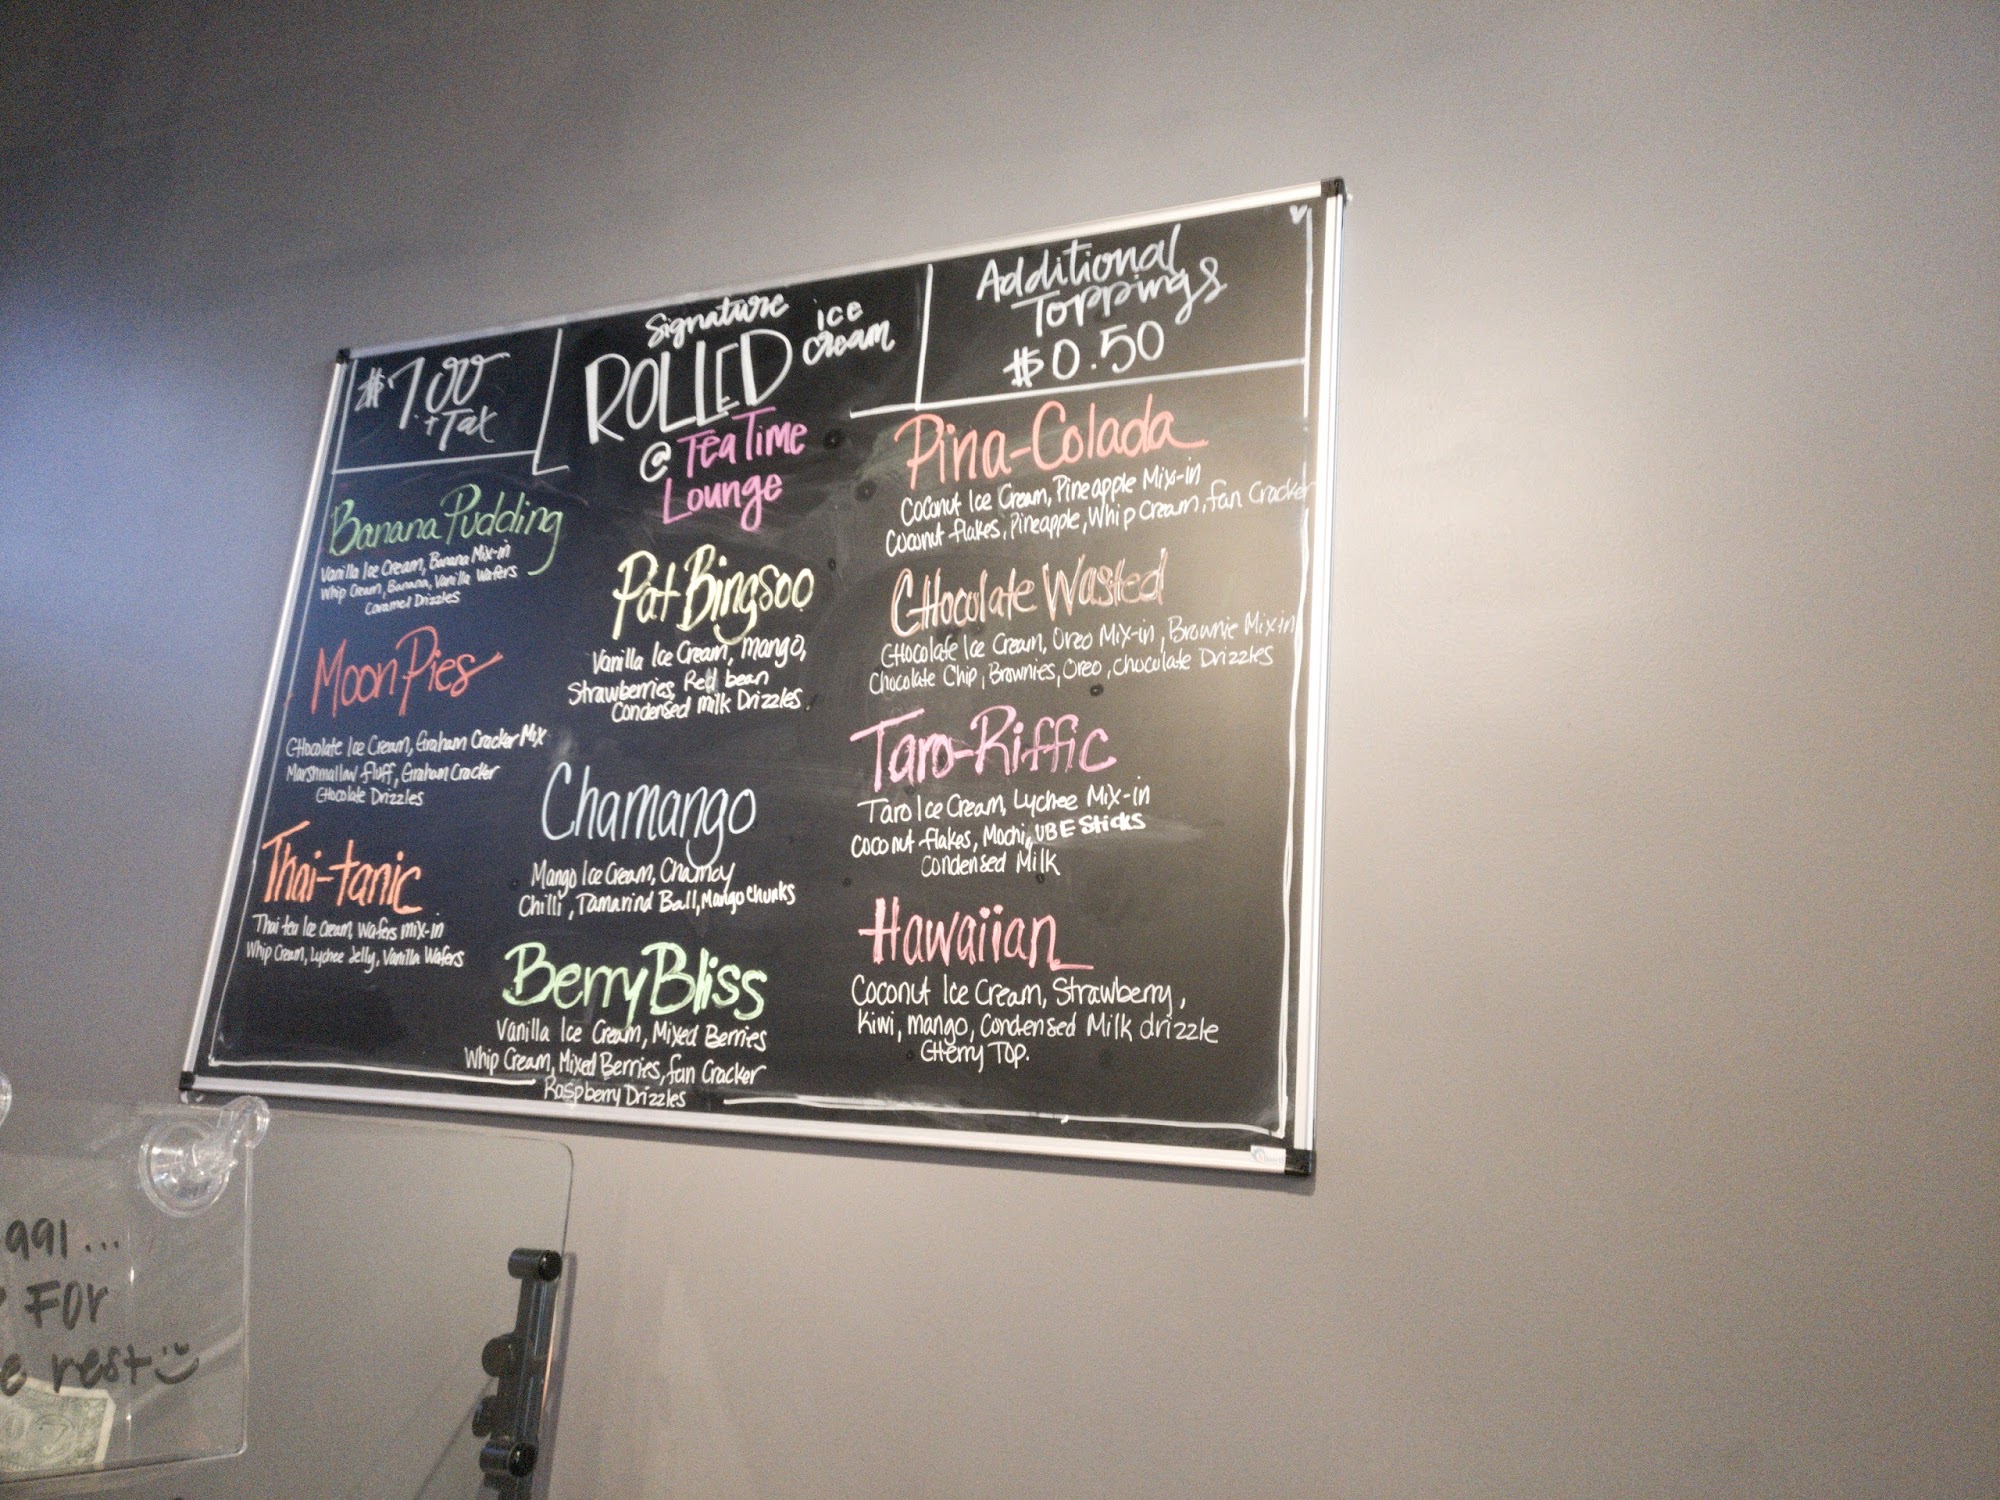 $7.00
+ Tax
Signature
ROLLED ice cream
@ Tea Time
Lounge
Additional
Toppings
$0.50
Banana Pudding
Vanilla Ice Cream, Banana Mix-in
Whip Cream, Banana, Vanilla Wafers
Caramel Drizzles
Moon Pies
CHocolate Ice Cream, Graham Cracker Mix
Marshmallow Fluff, Graham Cracker
CHocolate Drizzles
Thai-tanic
Thai tea Ice Cream, Wafers mix-in
Whip Cream, Lychee Jelly, Vanilla Wafers
Pat Bingsoo
Vanilla Ice Cream, mango,
Strawberries, Red bean
Condensed Milk Drizzles
Chamango
Mango Ice Cream, Chamoy
Chilli, Tamarind Ball, Mango Chunks
Berry Bliss
Vanilla Ice Cream, Mixed Berries
Whip Cream, Mixed Berries, fan Cracker
Raspberry Drizzles
Pina-Colada
Coconut Ice Cream, Pineapple Mix-in
Coconut flakes, Pineapple, Whip Cream, fan Cracker
CHocolate Wasted
CHocolate Ice Cream, Oreo Mix-in, Brownie Mix-in
Chocolate Chip, Brownies, Oreo, Chocolate Drizzles
Taro-Riffic
Taro Ice Cream, Lychee Mix-in
Coconut flakes, Mochi, UBE Sticks
Condensed Milk
Hawaiian
Coconut Ice Cream, Strawberry,
Kiwi, mango, Condensed Milk drizzle
CHerry Top.
FOr
rest